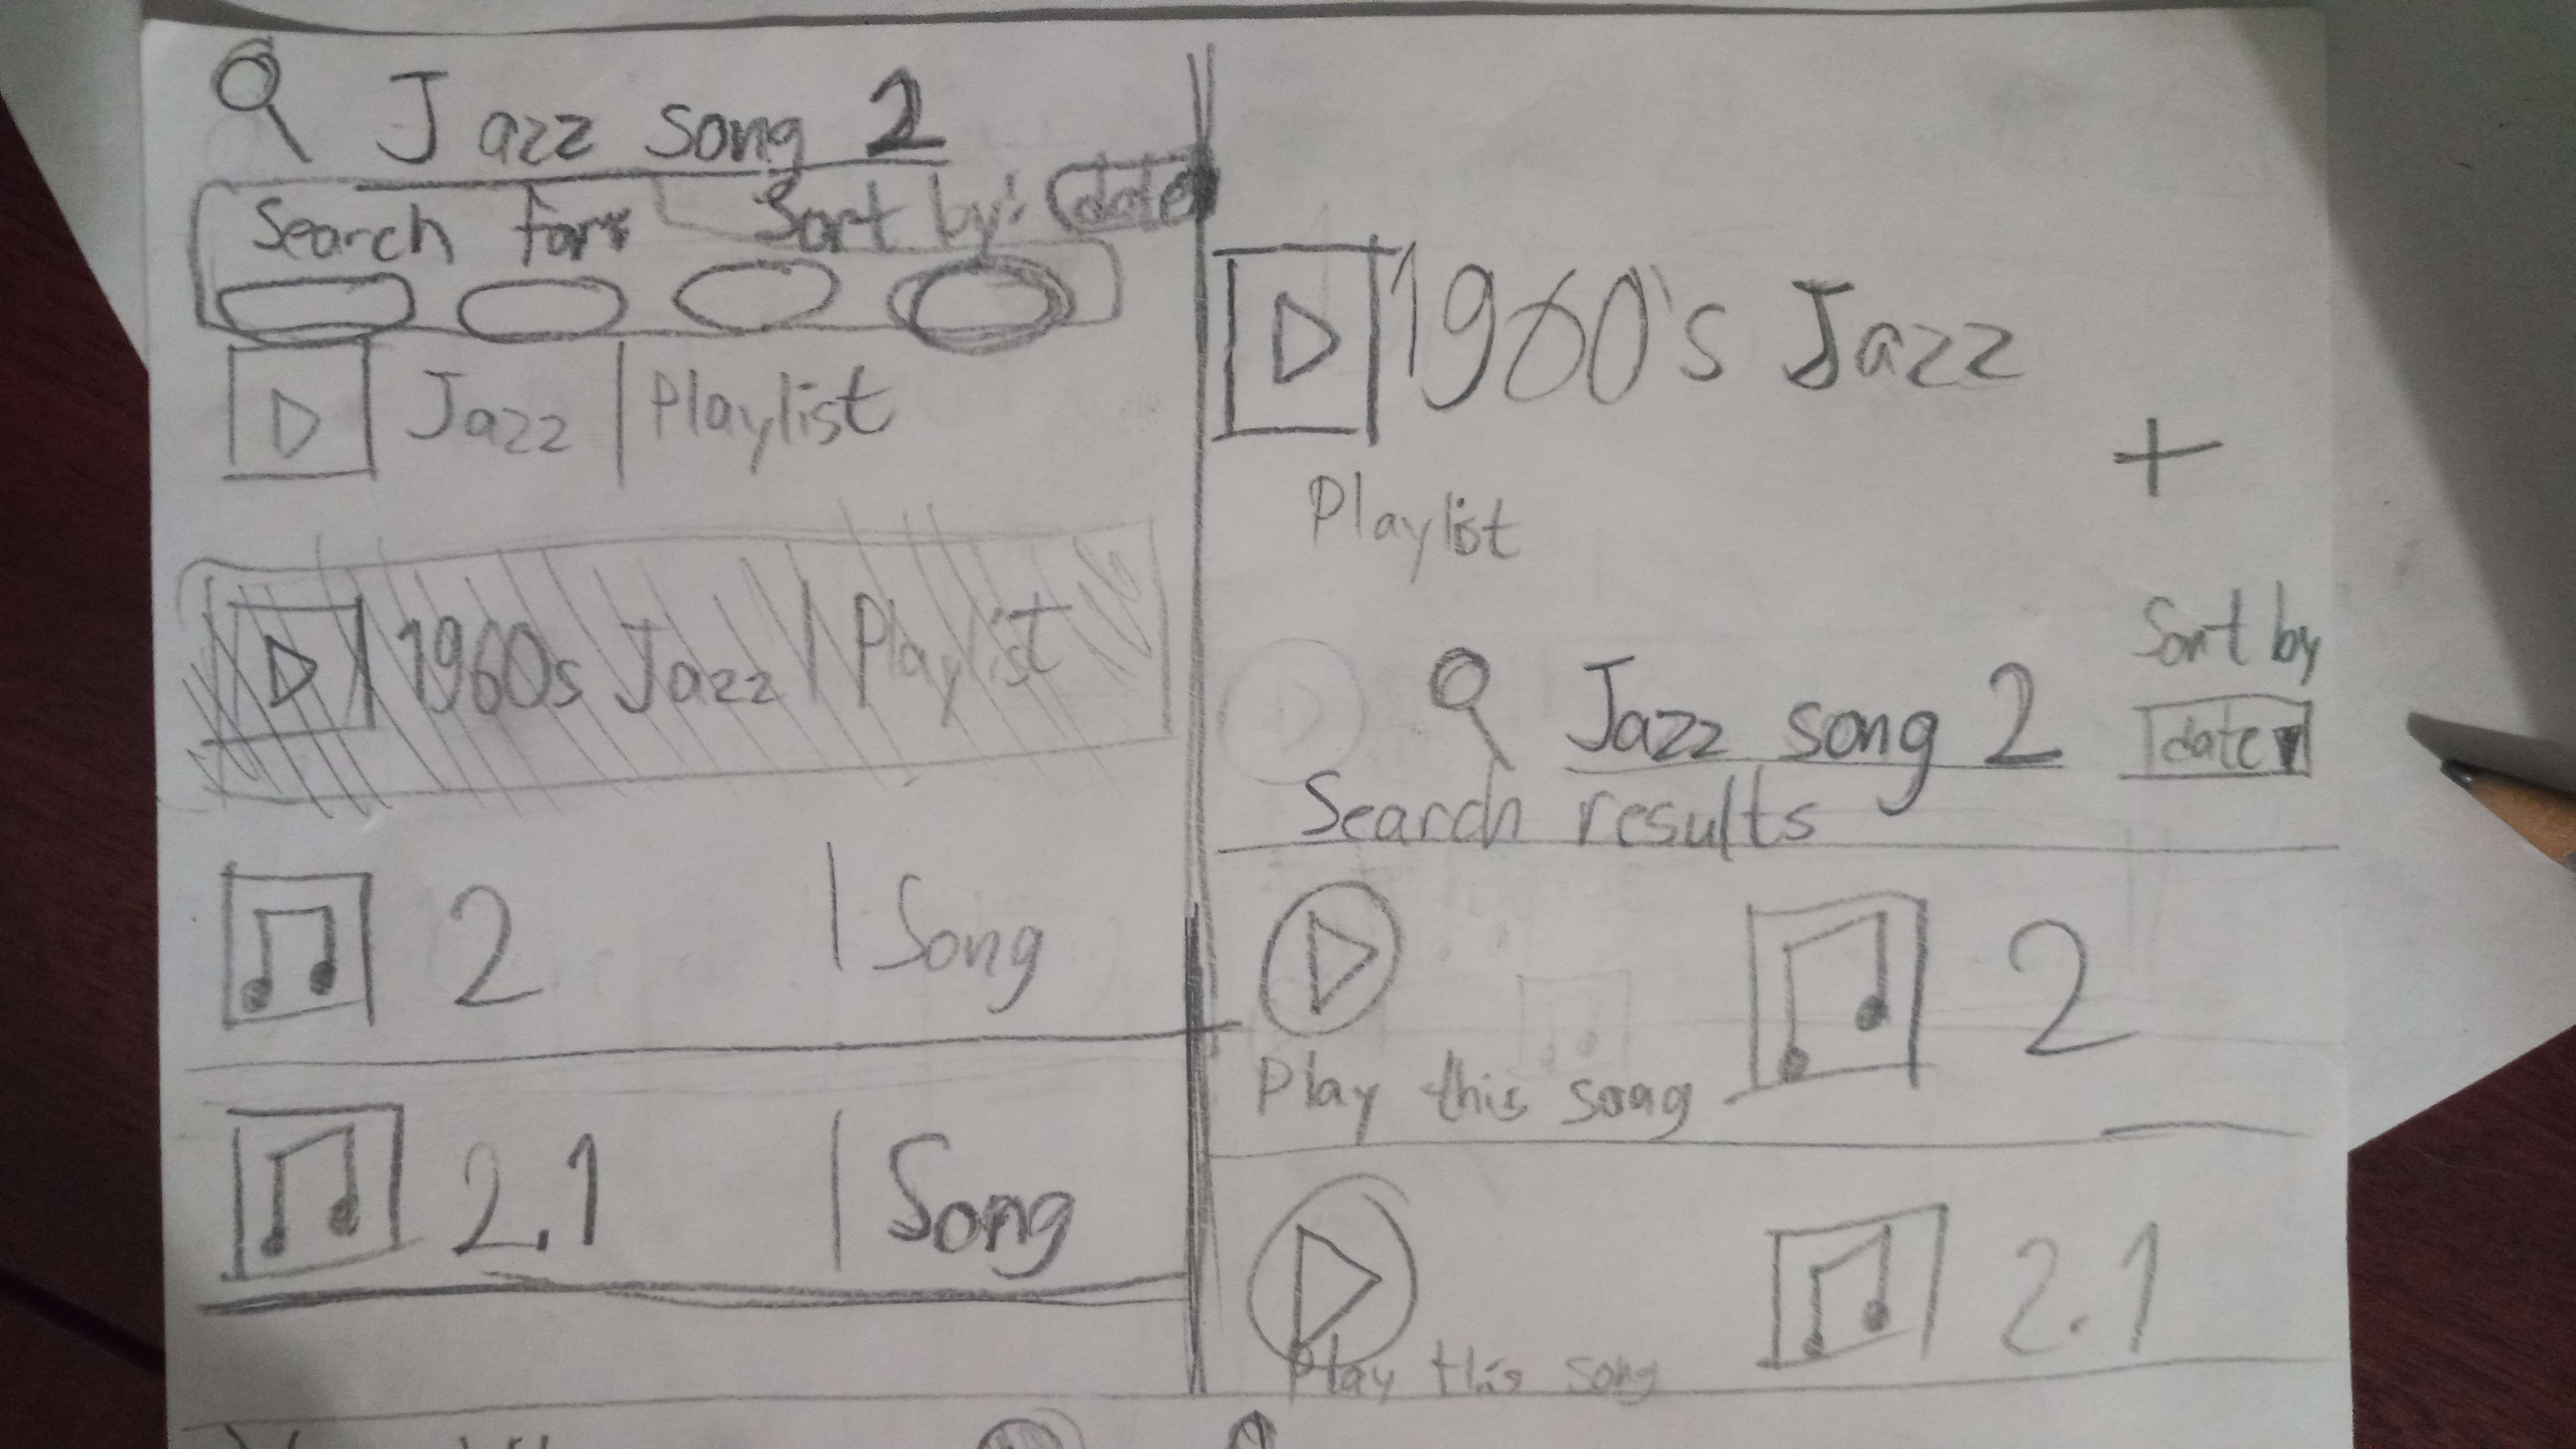 Jazz song 2
Search for: Sort by: date
Jazz | Playlist
1960s Jazz | Playlist
2 | Song
2.1 | Song
1960's Jazz
+
Playlist
Sort by
Jazz song 2 date
Search results
2
Play this song
2.1
Play this song